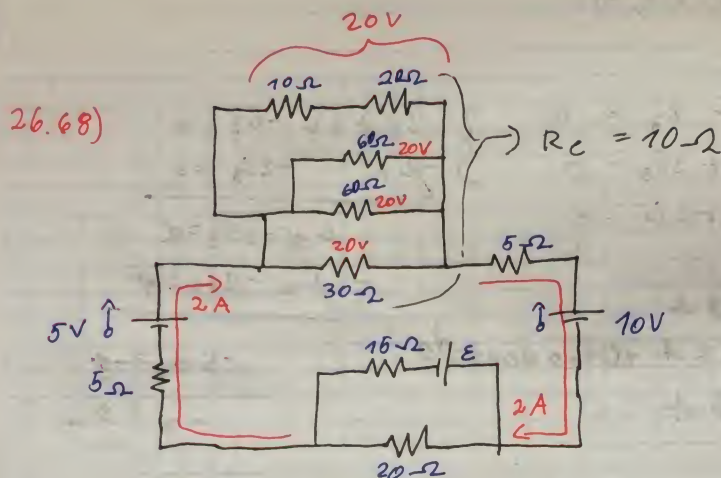 20V
26.68)
10Ω 20Ω
60Ω 20V
60Ω 20V
Re = 10Ω
20V
30Ω
5Ω
2A
5V
10V
5Ω
15Ω ε
2A
20Ω